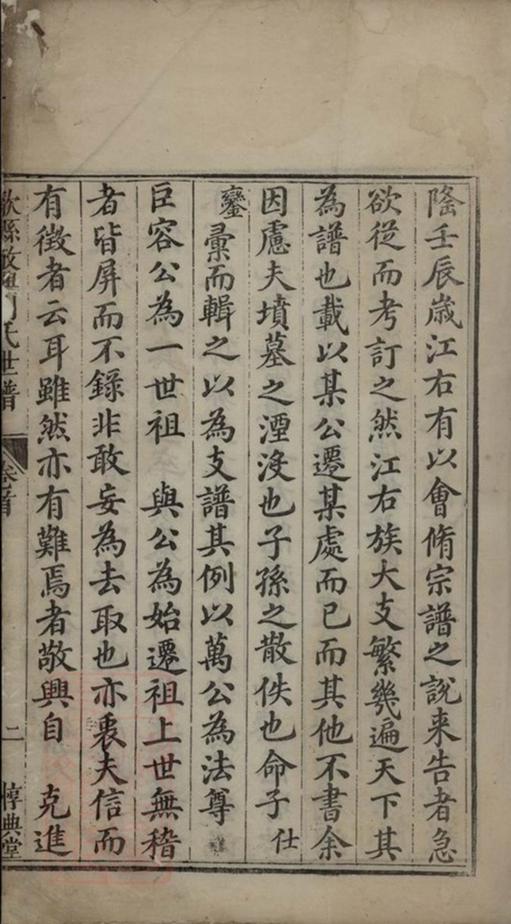 隆壬辰歳江右有以會脩宗譜之說来告者急
欲從而考訂之然江右族大支繁幾遍天下其
為譜也載以某公遷某處而已而其他不書余
因慮夫墳墓之湮没也子孫之散佚也命子仕
鑾彚而輯之以為支譜其例以萬公為法尊
巨容公為一世祖 與公為始遷祖上世無稽
者皆屏而不錄非敢妄為去取也亦衷夫信而
有徵者云耳雖然亦有難焉者敬興自 克進
歙縣 氏世譜 卷首 二 惇典堂